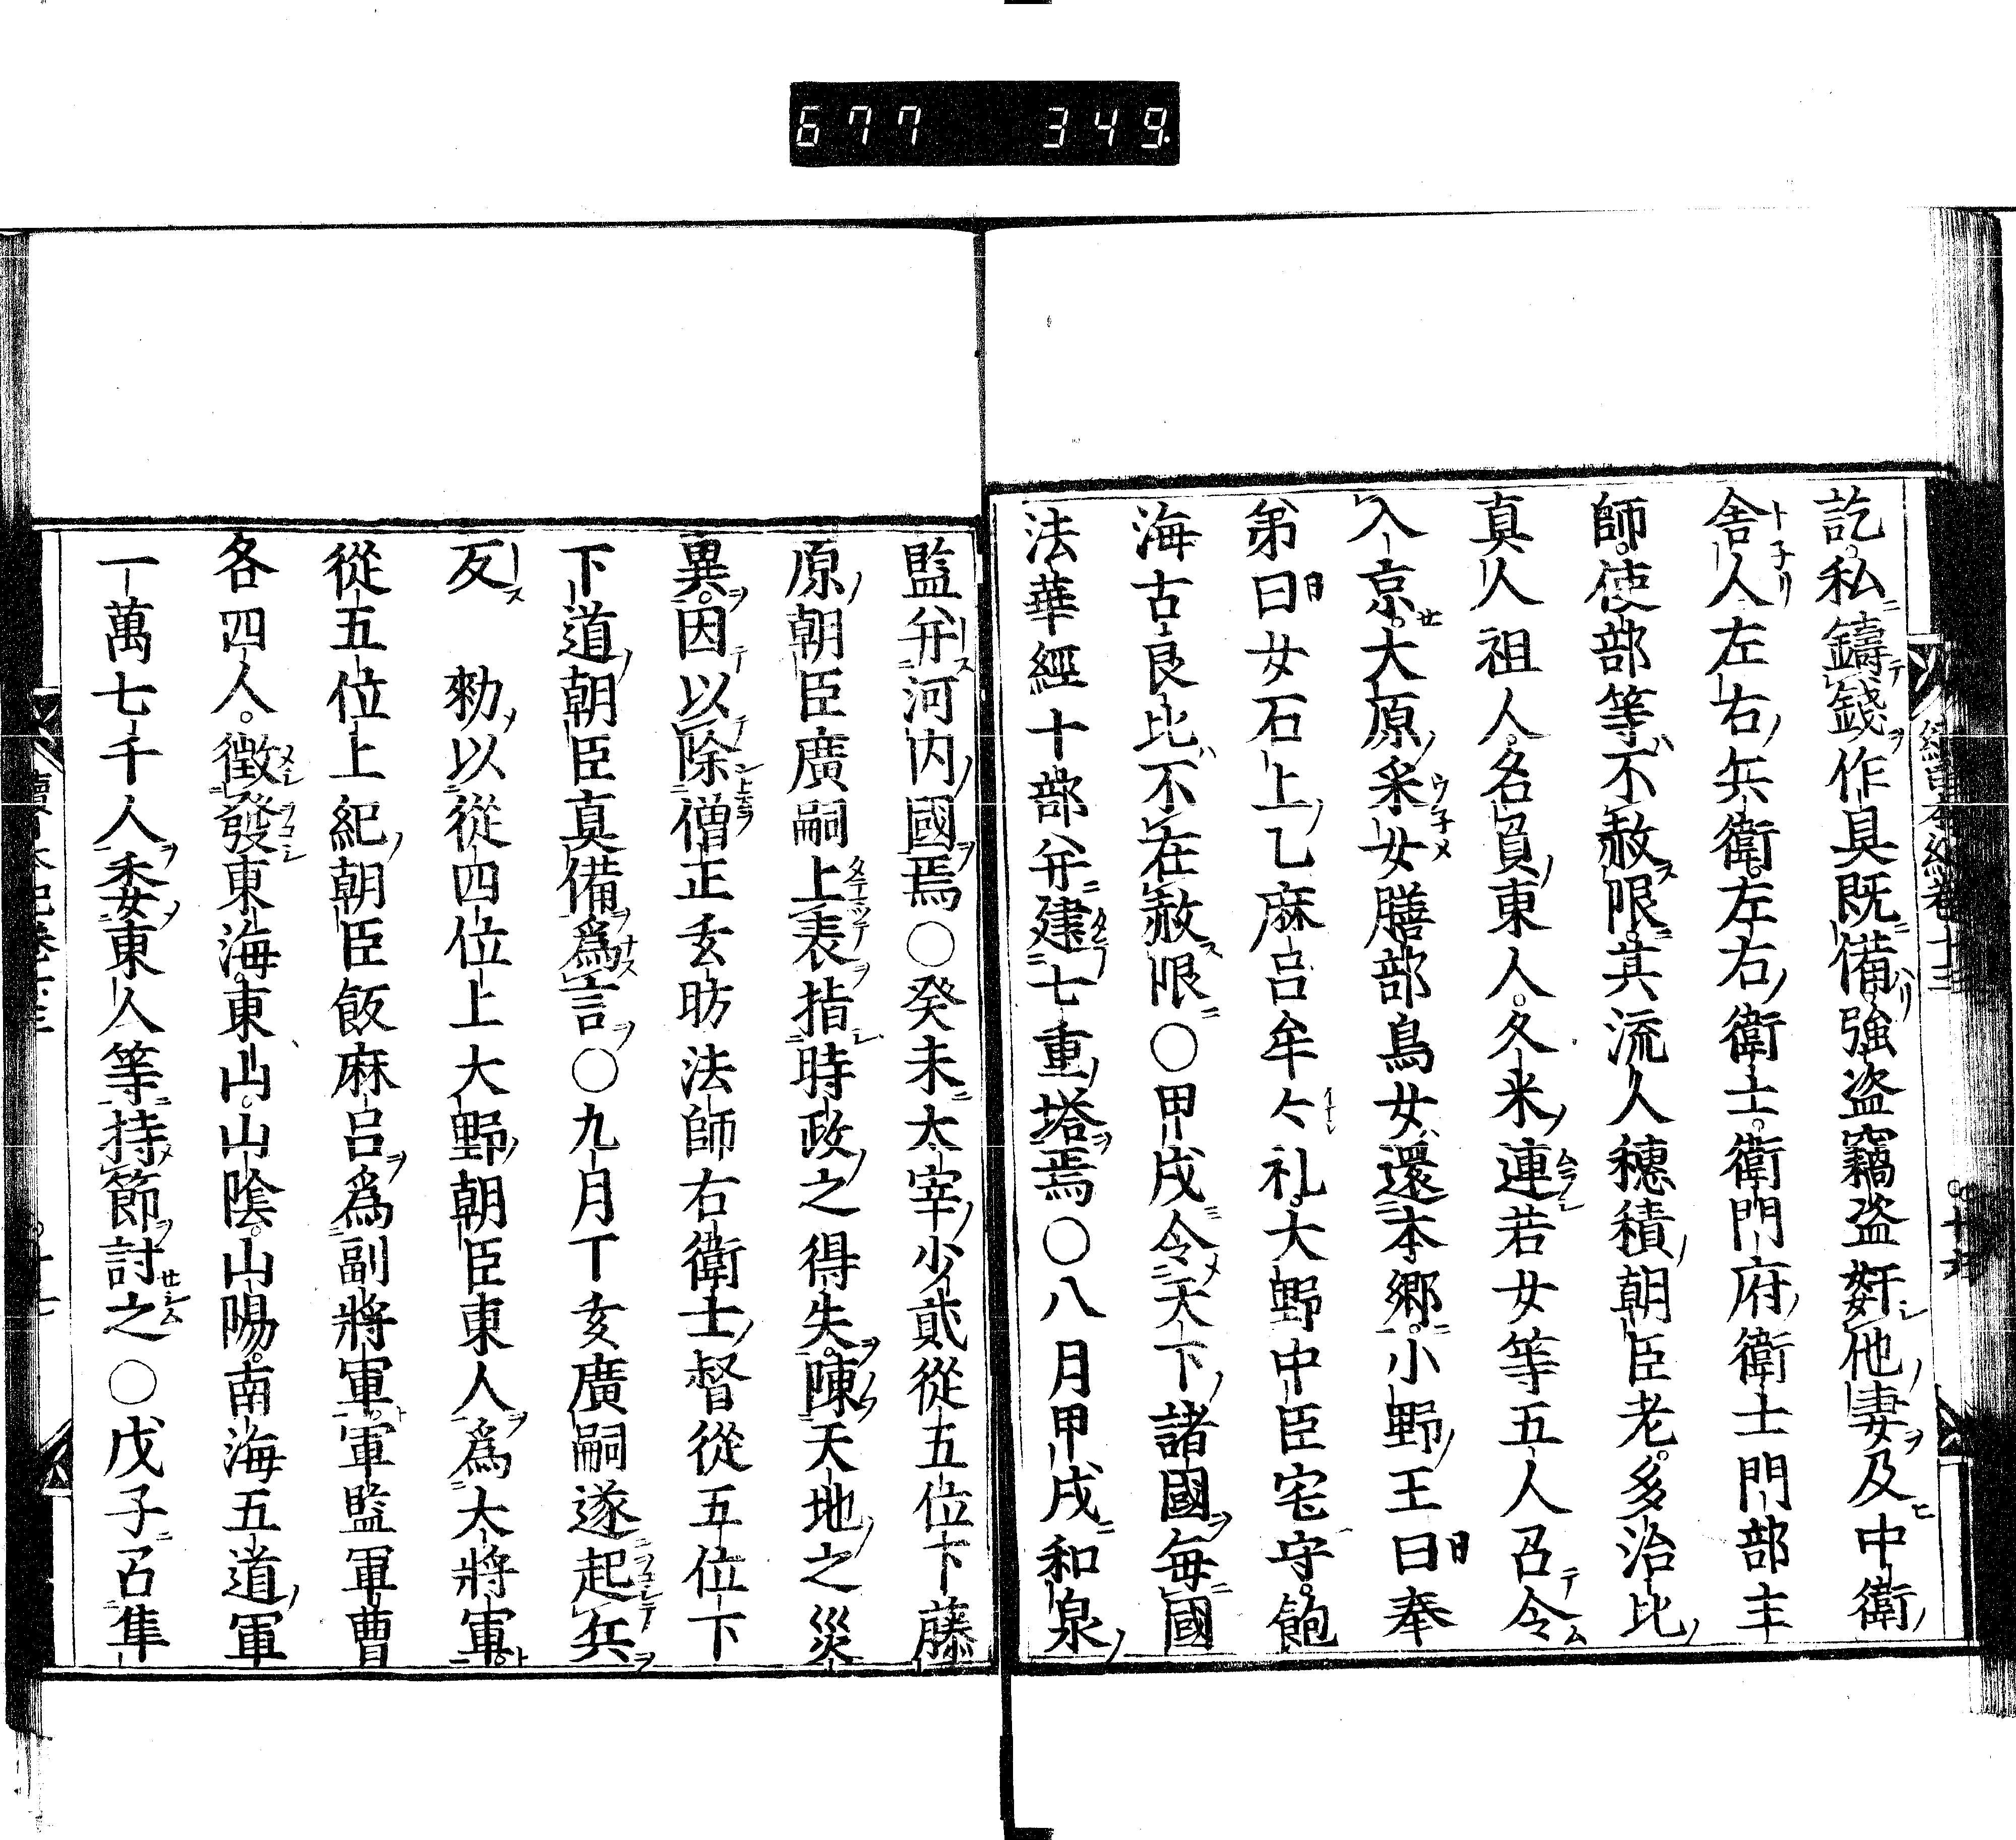 677 349.
訖。私鑄錢作具既備。強盗竊盗姧他妻及中衛
舎人左右兵衛。左右衛士。衛門府衛士門部主
師。使部等不赦限。其流人穗積朝臣老。多治比
真人祖人。名負東人。久米連若女等五人召令
入京。大原采女膳部鳥女還本郷。小野王曰奉
第曰女石上乙麻呂牟々礼。大野中臣宅守。飽
海古良比不在赦限○甲戌令天下諸國毎國
法華經十部并建七重塔焉○八月甲戌和泉
監并河内國焉○癸未太宰少貳從五位下藤
原朝臣廣嗣上表指時政之得失。陳天地之災
異。因以除僧正玄昉法師右衛士督從五位下
下道朝臣真備為言○九月丁亥廣嗣遂起兵
反　勑以從四位上大野朝臣東人為大將軍
從五位上紀朝臣飯麻呂為副將軍軍監軍曹
各四人。徴發東海。東山。山陰。山陽。南海五道軍
一萬七千人委東人等持節討之○戊子召隼